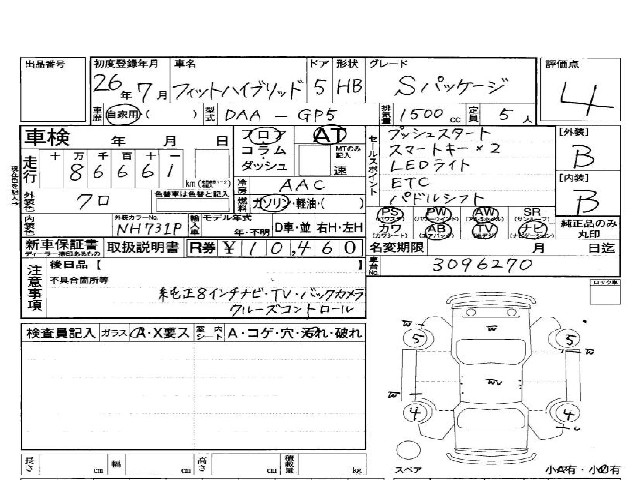 出品番号 初度登録年月 車名 ドア 形状 グレード 評価点
26年7月 フィットハイブリッド 5 HB Sパッケージ 4
車歴 自家用・( ) 型式 DAA-GP5 排気量 1500cc 定員 5人
車検 年 月 日 フロア AT セールスポイント プッシュスタート [外装]
コラム・ MTのみ記入 スマートキー×2 B
走行 十 万 千 百 十 一 ダッシュ 速 LEDライト
86661 km 冷房 AAC ETC [内装]
外装色 クロ 色替車は色替と記入 燃料 ガソリン・軽油・( ) パドルシフト B
PS PW AW SR
内装色 外装カラーNo. NH731P 輸入車 モデル年式 年・不明 D車・並 右H・左H カワ AB TV ナビ 純正品のみ丸印
新車保証書 取扱説明書 R券 ¥10,460 名変期限 月 日迄
ディーラー捺印あるもの
注意事項 後日品【 】 車台No. 3096270
不具合箇所等
純正8インチナビ・TV・バックカメラ ロック車
クルーズコントロール
検査員記入 ガラス A・X要ス 室内シート A・コゲ・穴・汚れ・破れ
W W
5 5
W W W
4 4
長さ cm 幅 cm 高さ cm 積載量 kg スペア 小A有・小U有